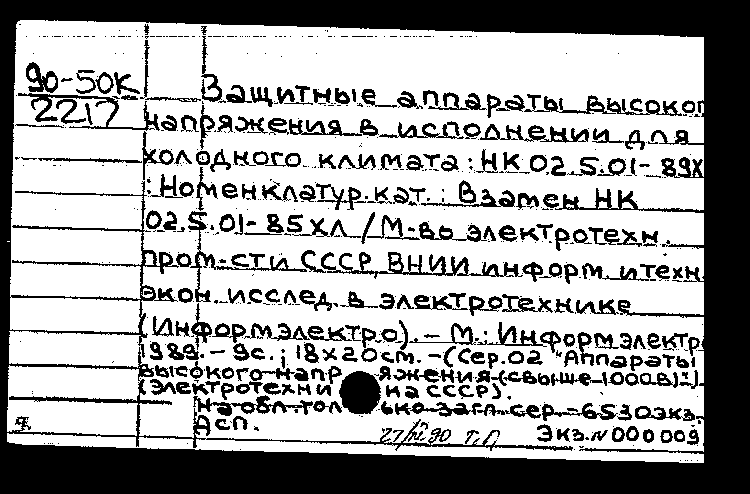 90-50К
2217
Защитные аппараты высоког
напряжения в исполнении для
холодного климата : НК 02.5.01-89Х
: Номенклатур. кат. : Взамен НК
02.5.01-85ХЛ / М-во электротехн.
пром-сти СССР, ВНИИ информ. и техн.
экон. исслед. в электротехнике
(Информэлектро). – М.: Информэлектро
1989. – 9с. ; 18х20см. – (Сер. 02 "Аппараты
высокого напряжения (свыше 1000В)")
(Электротехника СССР).
На обл. только загл. сер. – 6530экз.
Дсп.
Экз. N 000 009